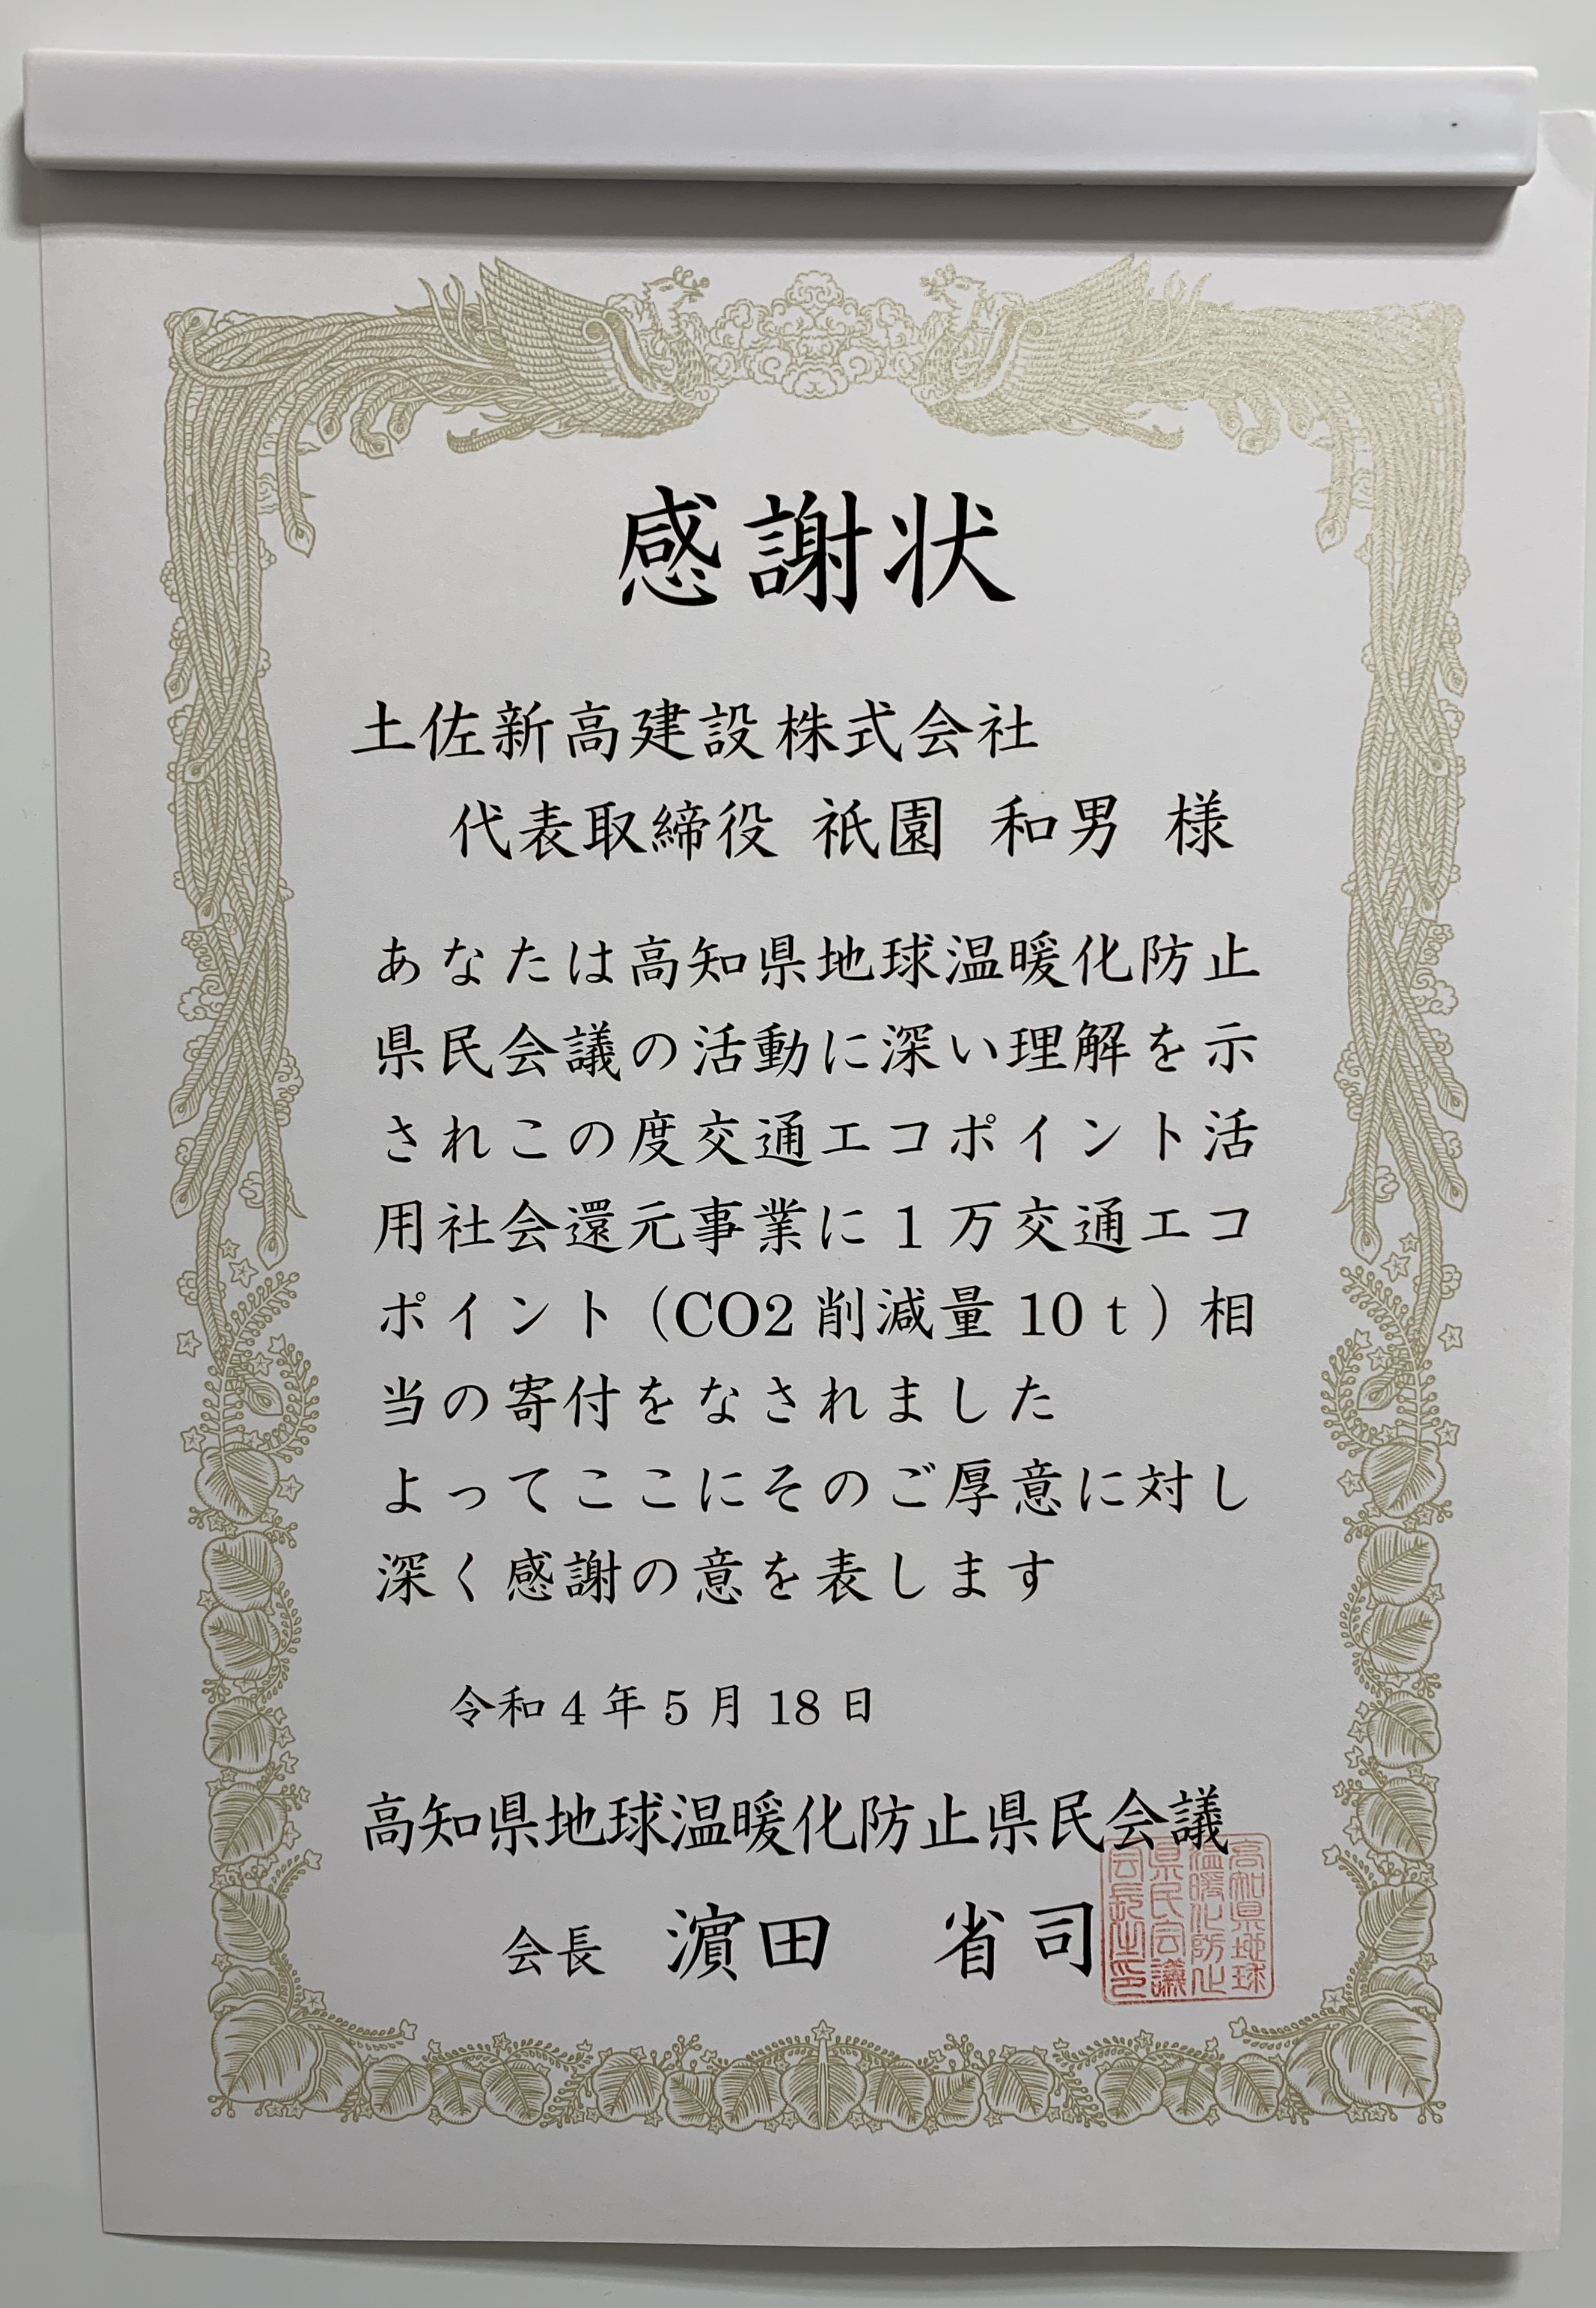 感謝状
土佐新高建設株式会社
代表取締役 祇園 和男 様
あなたは高知県地球温暖化防止
県民会議の活動に深い理解を示
されこの度交通エコポイント活
用社会還元事業に1万交通エコ
ポイント（CO2削減量10ｔ）相
当の寄付をなされました
よってここにそのご厚意に対し
深く感謝の意を表します
令和4年5月18日
高知県地球温暖化防止県民会議
会長 濵田 省司
高知県地球
温暖化防止
県民会議
会長之印